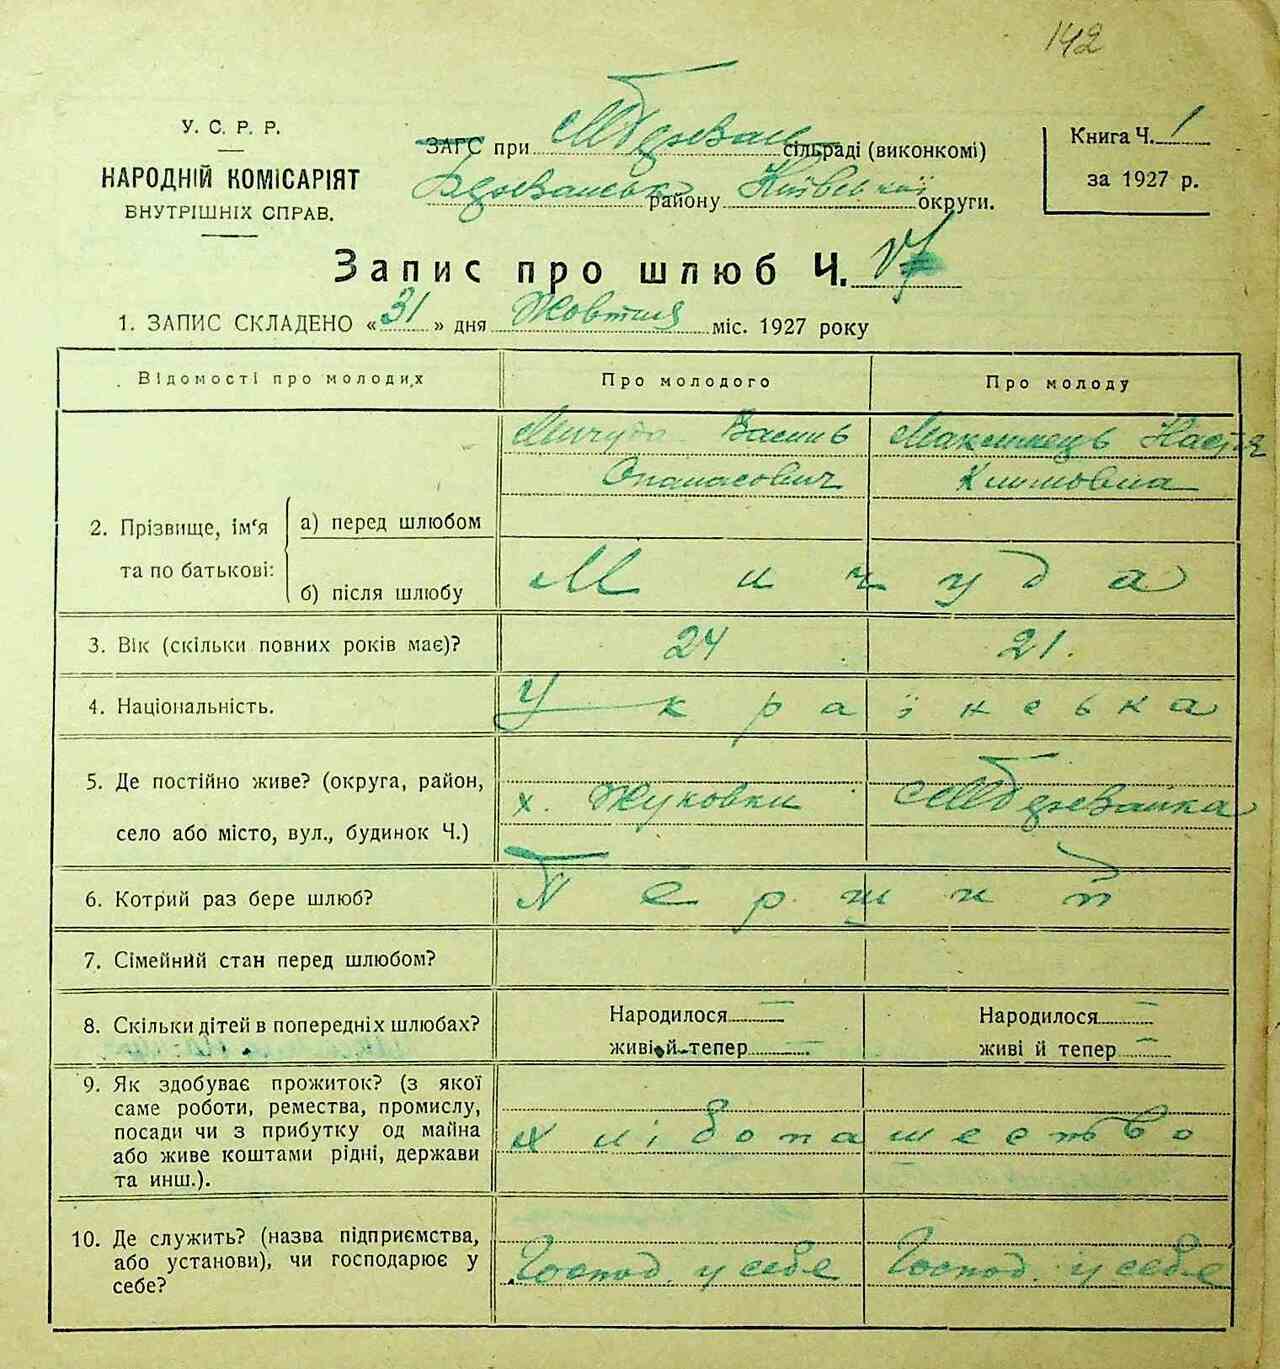 142
У. С. Р. Р.
НАРОДНІЙ КОМІСАРІЯТ
ВНУТРІШНІХ СПРАВ.
ЗАГС при сільраді (виконкомі)
району Київської округи.
Книга Ч. 1
за 1927 р.
Запис про шлюб Ч.
1. ЗАПИС СКЛАДЕНО «31» дня Жовтня міс. 1927 року
Відомості про молодих
Про молодого
Про молоду
2. Прізвище, ім'я та по батькові:
а) перед шлюбом
Мичуда Василь
Опанасович
Максимець Настя
Климовна
б) після шлюбу
Мичуда
3. Вік (скільки повних років має)?
24
21.
4. Національність.
Українська
5. Де постійно живе? (округа, район,
село або місто, вул., будинок Ч.)
х. Жуковки
6. Котрий раз бере шлюб?
Перший
7. Сімейний стан перед шлюбом?
8. Скільки дітей в попередніх шлюбах?
Народилося —
живі й тепер —
Народилося —
живі й тепер —
9. Як здобуває прожиток? (з якої
саме роботи, ремества, промислу,
посади чи з прибутку од майна
або живе коштами рідні, держави
та инш.).
Хлібопашество
10. Де служить? (назва підприємства,
або установи), чи господарює у
себе?
Господ. у себе
Господ. у себе